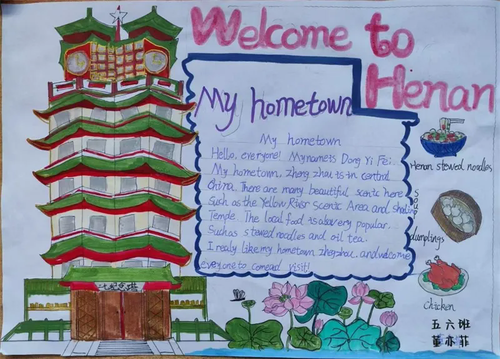 Welcome to
Henan
My hometown
My hometown
Hello, everyone! My name is Dong Yi Fei.
My hometown, zheng zhou is in central
China. There are many beautiful scenic here
Such as the Yellow River Scenic Area and Shaolin
Temple. The local food is also very popular.
Such as stewed noodles and oil tea.
I realy like my hometown zhengzhou, and welcome
everyone to come and visit!
Henan stewed noodles
Soup
dumplings
chicken
五六班
董亦菲